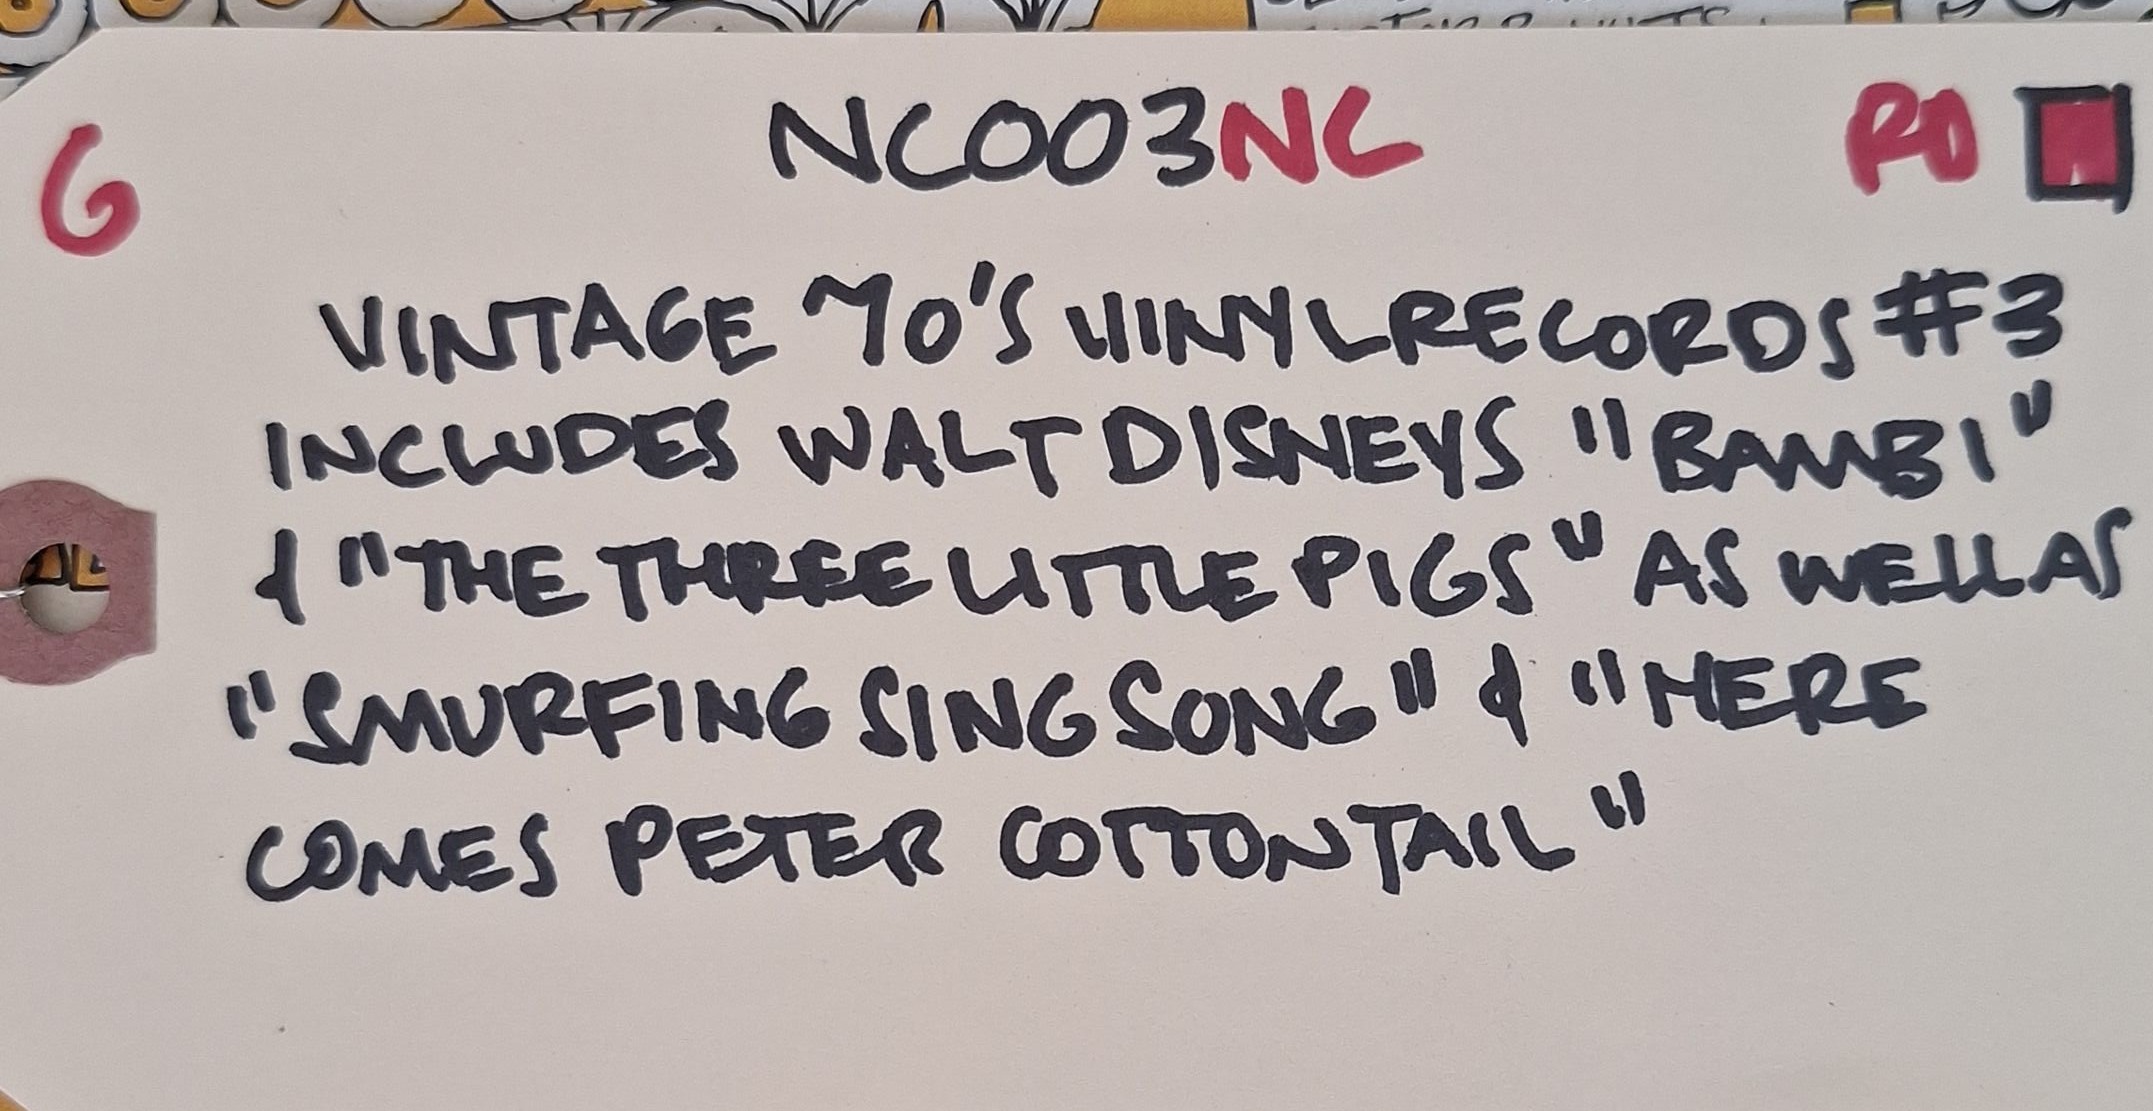 6 NC003NC RD
VINTAGE 70'S VINYL RECORDS #3
INCLUDES WALT DISNEYS "BAMBI"
& "THE THREE LITTLE PIGS" AS WELL AS
"SMURFING SING SONG" & "HERE
COMES PETER COTTONTAIL"